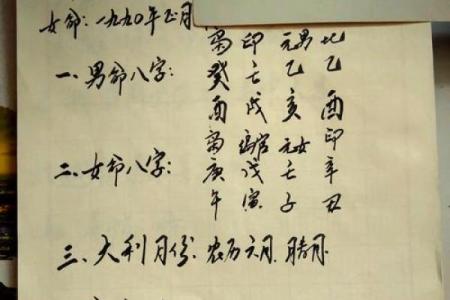 女命：一九九〇年正月
枭 印 元男 比
一、男命八字： 癸 壬 乙 乙
酉 戌 亥 酉
枭 元女 印
二、女命八字： 庚 戊 壬 辛
午 寅 子 丑
三、大利月份：农历六月、腊月